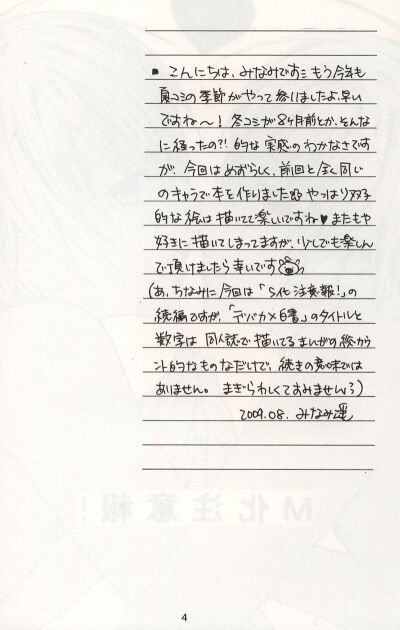 ▪ こんにちは、みなみです:: もう今年も
夏コミの季節がやって参りましたよ、早い
ですね～! 冬コミが8ヶ月前とか、そんな
に経ったの?! 的な実感のわかなさです
が、今回はめずらしく、前回と全く同じ
のキャラで本を作りました やっぱり双子
的な絵は描いてて楽しいですね♥ またもや
好きに描いてしまってますが、少しでも楽しん
で頂けましたら幸いです
(あ、ちなみに今回は「S化注意報!」の
続編ですが、「デバカメ白書」のタイトルと
数字は同人誌で描いてるまんがの絵からら
ント的なものなだけで、続きの意味では
ありません。まぎらわしくてすみません3)
2009.08. みなみ遥
M化注意報!
4